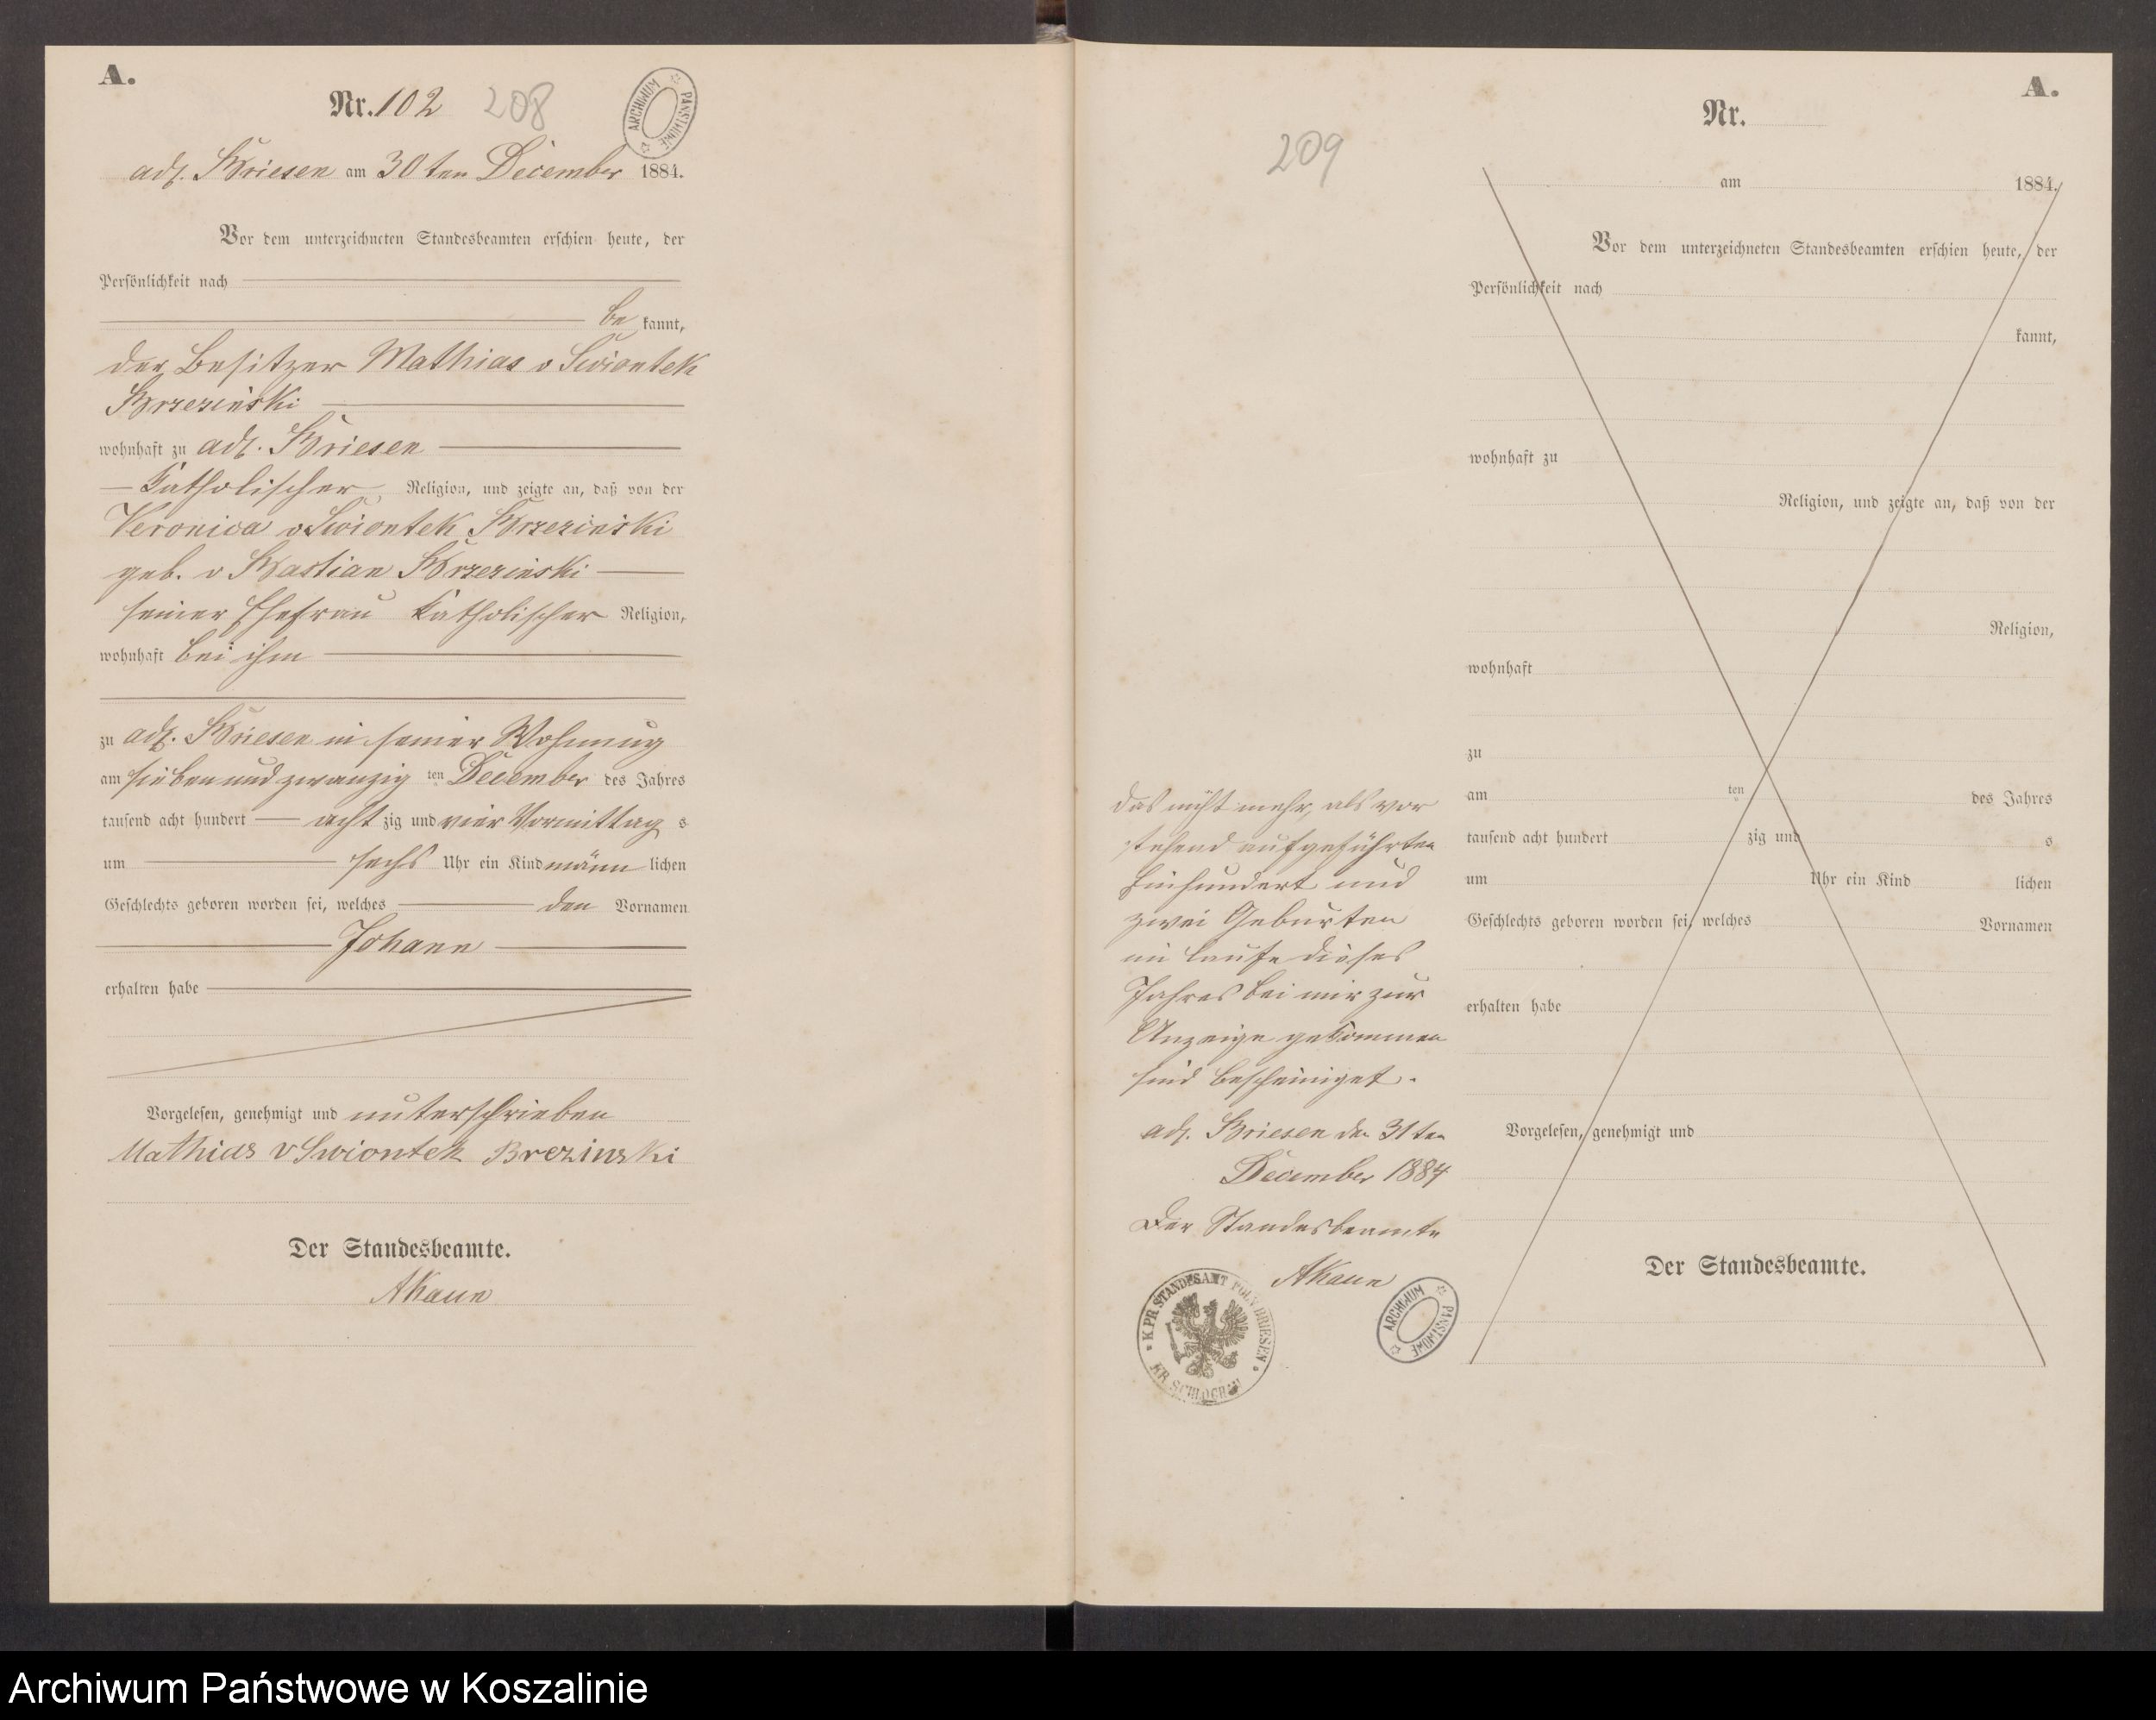 A.
Nr. 102 208
ARCHIWUM PAŃSTWOWE
adl. Briesen am 30ten December 1884.
Vor dem unterzeichneten Standesbeamten erschien heute, der
Persönlichkeit nach
be kannt,
der Besitzer Mathias v Swiontek
Brzezinski
wohnhaft zu adl. Briesen
Katholischer Religion, und zeigte an, daß von der
Veronica v Swiontek Brzezinski
geb. v Bastian Brzezinski
seiner Ehefrau Katholischer Religion,
wohnhaft bei ihm
zu adl. Briesen in seiner Wohnung
am sieben und zwanzig ten December des Jahres
tausend acht hundert acht zig und vier Vormittag s
um sechs Uhr ein Kind männ lichen
Geschlechts geboren worden sei, welches den Vornamen
Johann
erhalten habe
Vorgelesen, genehmigt und unterschrieben
Mathias v Swiontek Brezinski
Der Standesbeamte.
A.
Nr.
209
am 1884.
Vor dem unterzeichneten Standesbeamten erschien heute, der
Persönlichkeit nach
kannt,
wohnhaft zu
Religion, und zeigte an, daß von der
Religion,
wohnhaft
zu
am ten des Jahres
tausend acht hundert zig und s
um Uhr ein Kind lichen
Geschlechts geboren worden sei, welches Vornamen
erhalten habe
Vorgelesen, genehmigt und
Der Standesbeamte.
Das nicht mehr, als vor
stehend aufgeführten
Einhundert und
zwei Geburten
im Laufe dieses
Jahres bei mir zur
Anzeige gekommen
sind bescheiniget.
adl. Briesen den 31ten
December 1884
Der Standesbeamte
K. PR. STANDESAMT POLN BRIESEN
KR SCHLOCHAU
ARCHIWUM PAŃSTWOWE
Archiwum Państwowe w Koszalinie